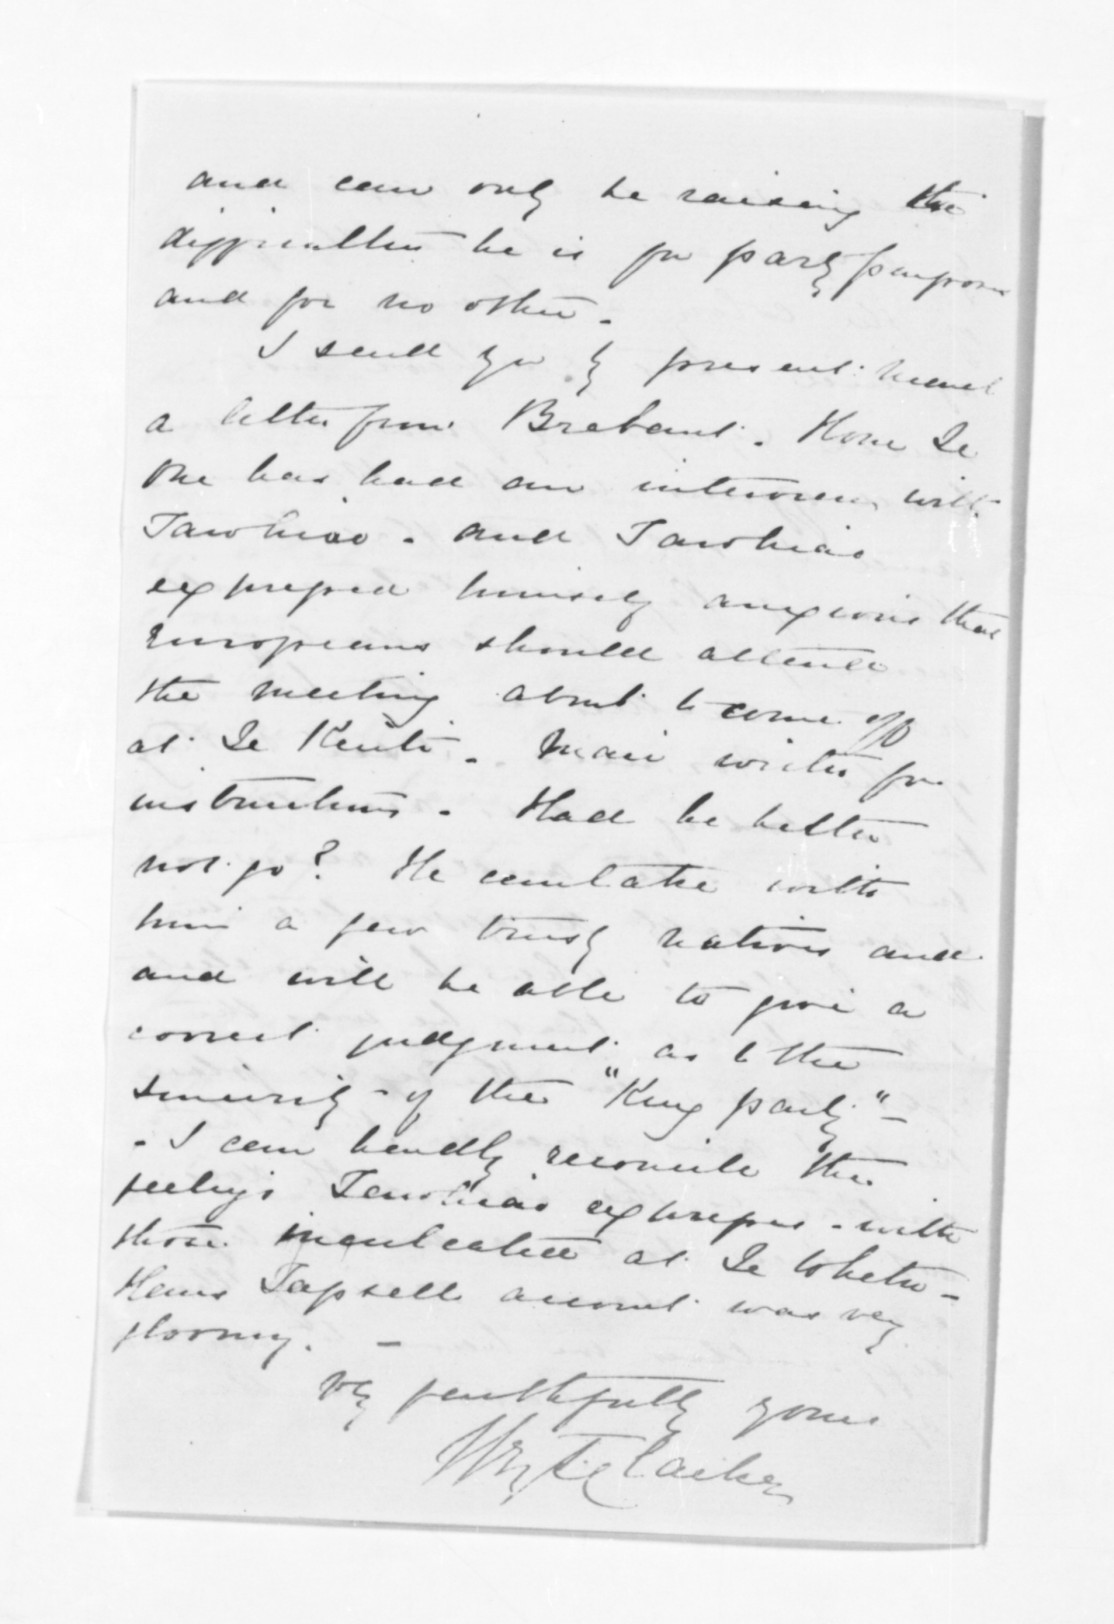 and can only be raising the
difficulties he is for party purposes
and for no other.
I send you by present mail
a letter from Brabant. Hone Te
One has had an interview with
Tawhiao. and Tawhiao
expressed himself anxious that
Europeans should attend
the meeting about to come off
at Te Kuiti. Mair writes for
instructions. Had he better
not go? He can take with
him a few trusty natives and
and will be able to give a
correct judgment as to the
sincerity of the "King party"-
- I can hardly reconcile the
feelings Tawhiao expresses - with
those inculcated at Te Whetu -
Hans Tapsell account was very
gloomy. -
Vy faithfully yours